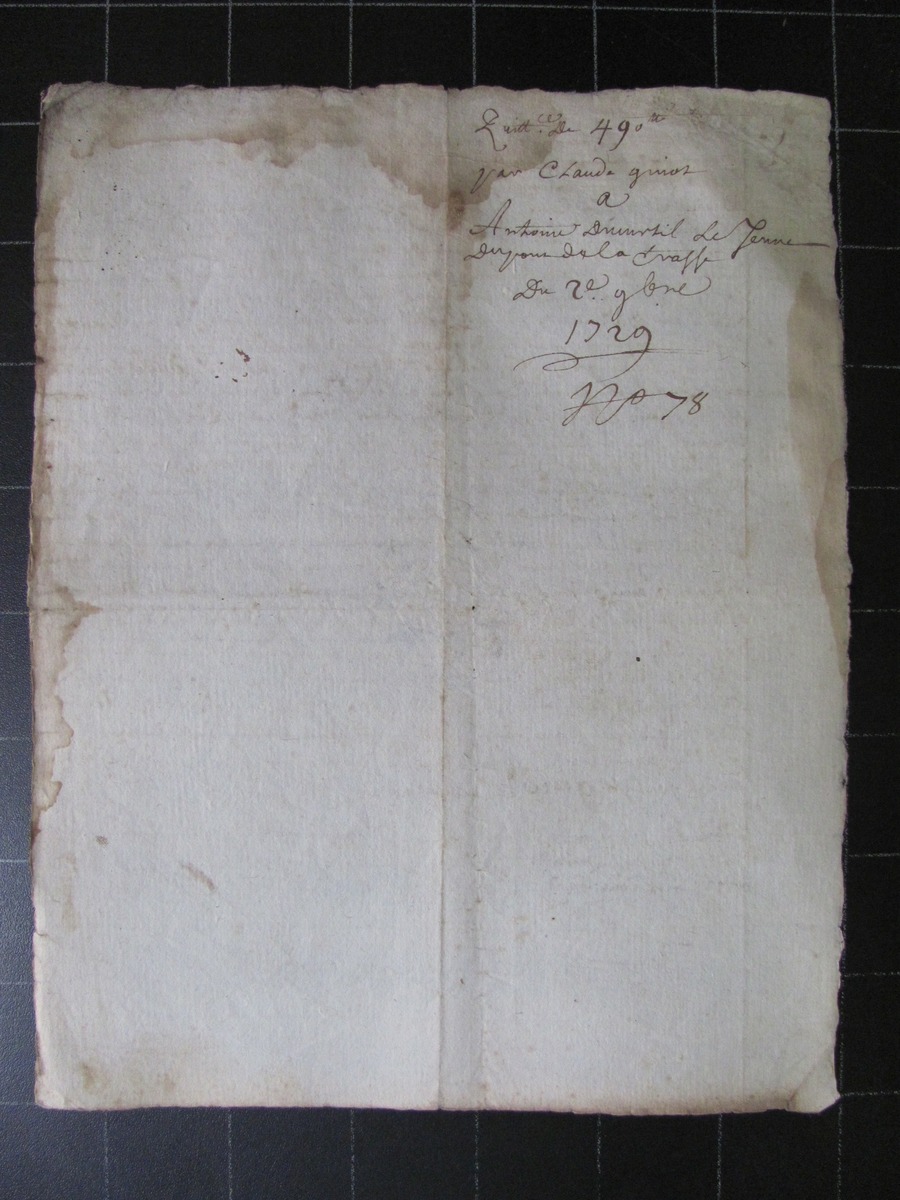 Quitt.ce De 490tt
par Claude guiot
a
Antoine Dumurtil Le Jeune
Dupont de la Trasse
Du 2e. 9bre
1729
No 78